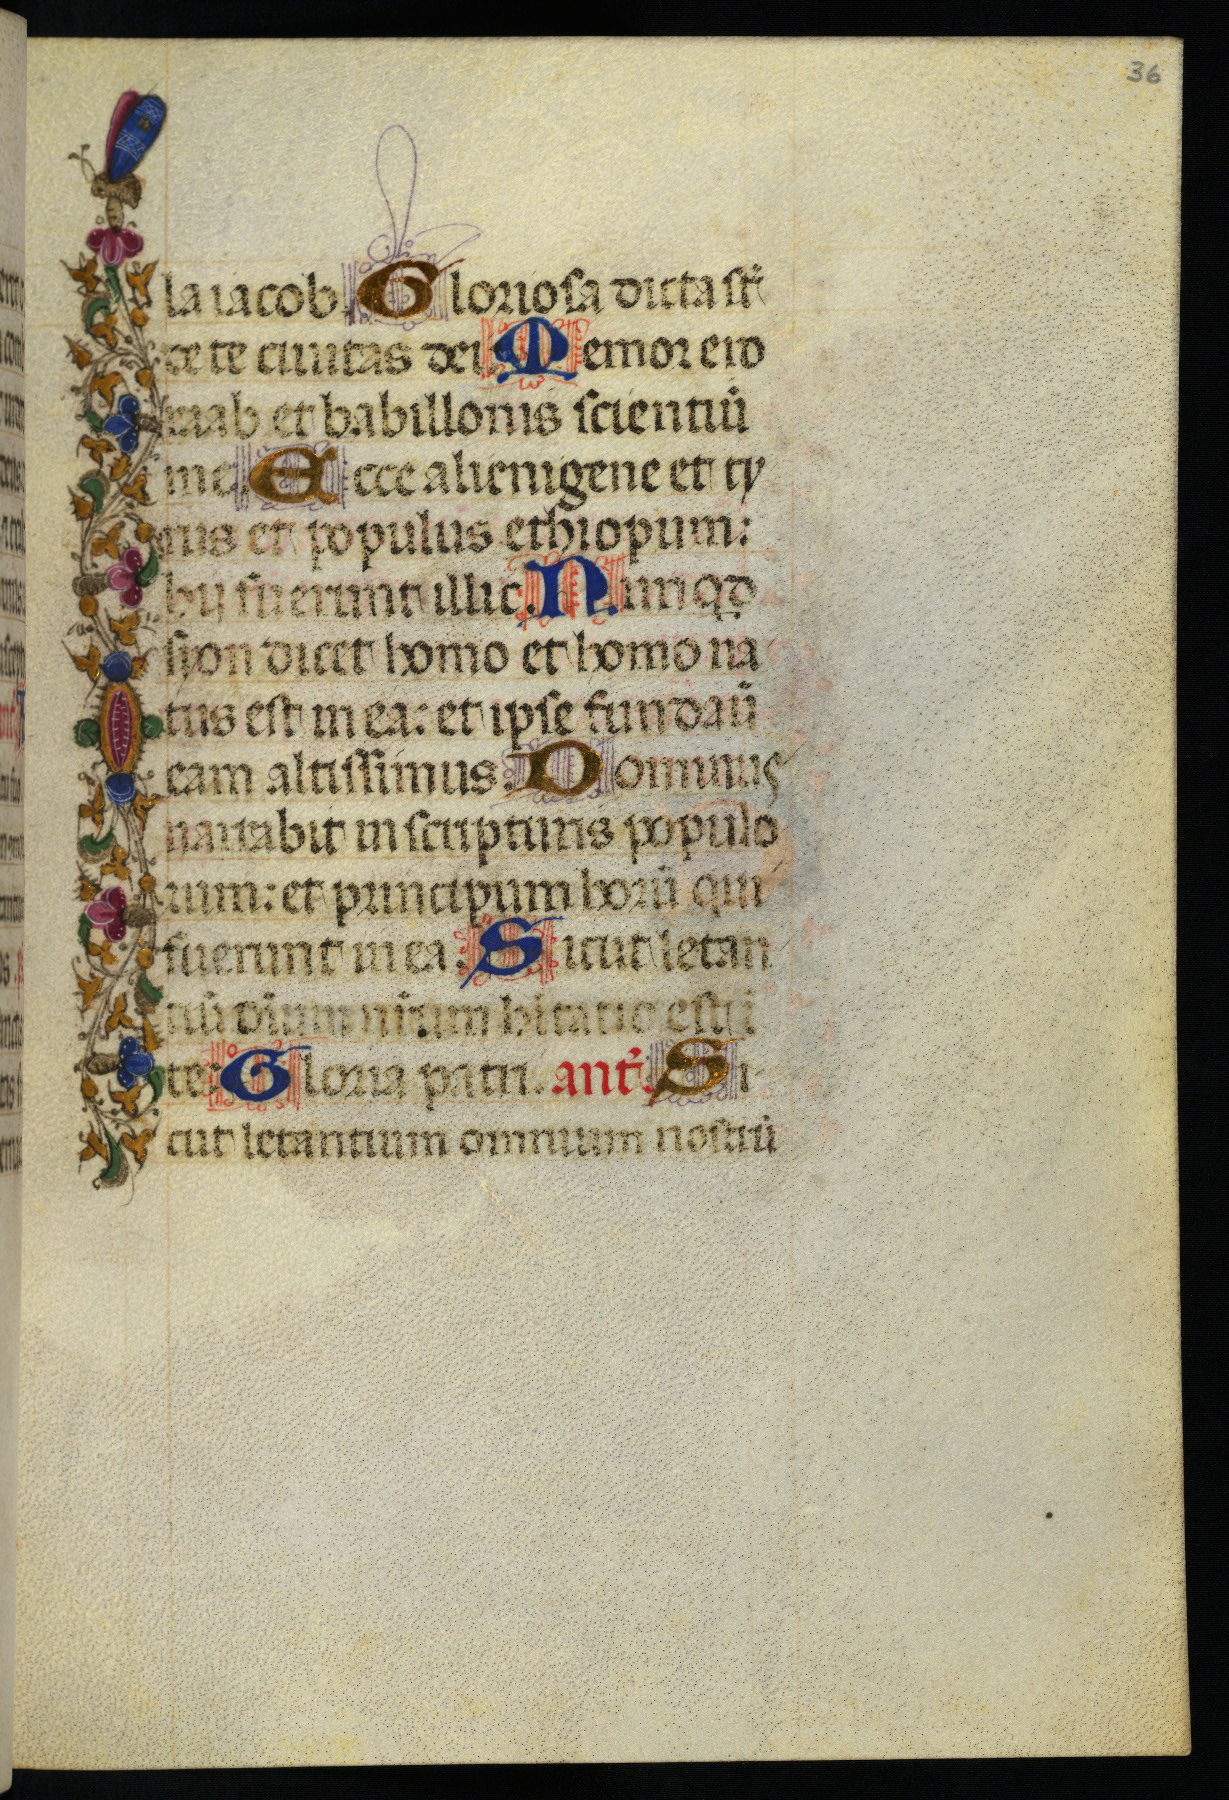 36
la iacob. Gloriosa dicta st̃
de te ciuitas dei. Memor ero
raab et babillonis scientiũ
me. Ecce alienigene et ty
rus et populus ethiopum:
hij fuerunt illic. Nunqd
syon dicet homo et homo na
tus est in ea: et ipse fundauit
eam altissimus. Dominus
narrabit in scripturis populo
rum: et principum horũ qui
fuerunt in ea. Sicut letan
tiũ oĩum nr̃um hĩtatio est ĩ
te. Gloria patri. ant̃. Si
cut letantium omnium nostrũ